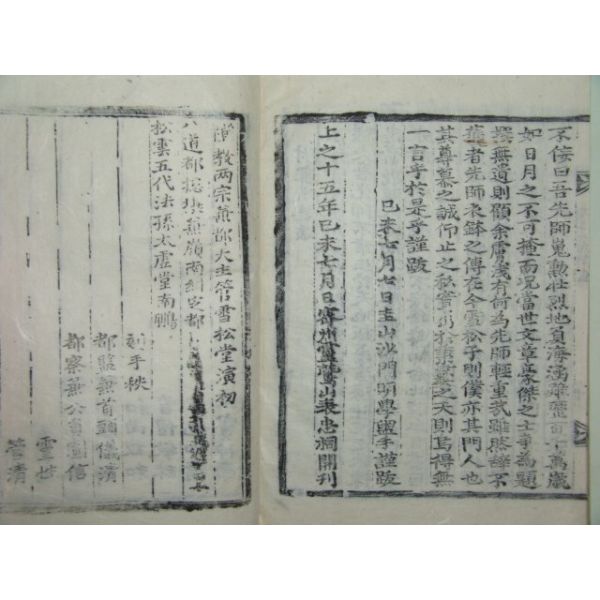 不佞曰吾先師嵬勲壮烈地負海涵雖歷百千萬歲
如日月之不可掩而况當世文章豪傑之士爭為題
無道則顧余膚淺有何為先師輕重哉雖然辭不
者先師衣鉢之傳在今雪松子則僕亦其門人也
其尊慕之誠仰止之私實之天則焉得無
一言乎於是乎謹跋
己未七月七日圭山沙門明學盥手謹跋
上之十五年己未七月日密州靈鷲山表忠祠開刊
禪教两宗兼都大主管雪松堂演初
八道都摠攝兼嶺南糾正都
松雲五代法孫太虛堂南鵬
刻手秩
都監兼首頭儀清
都察兼公員信
雪世
管清